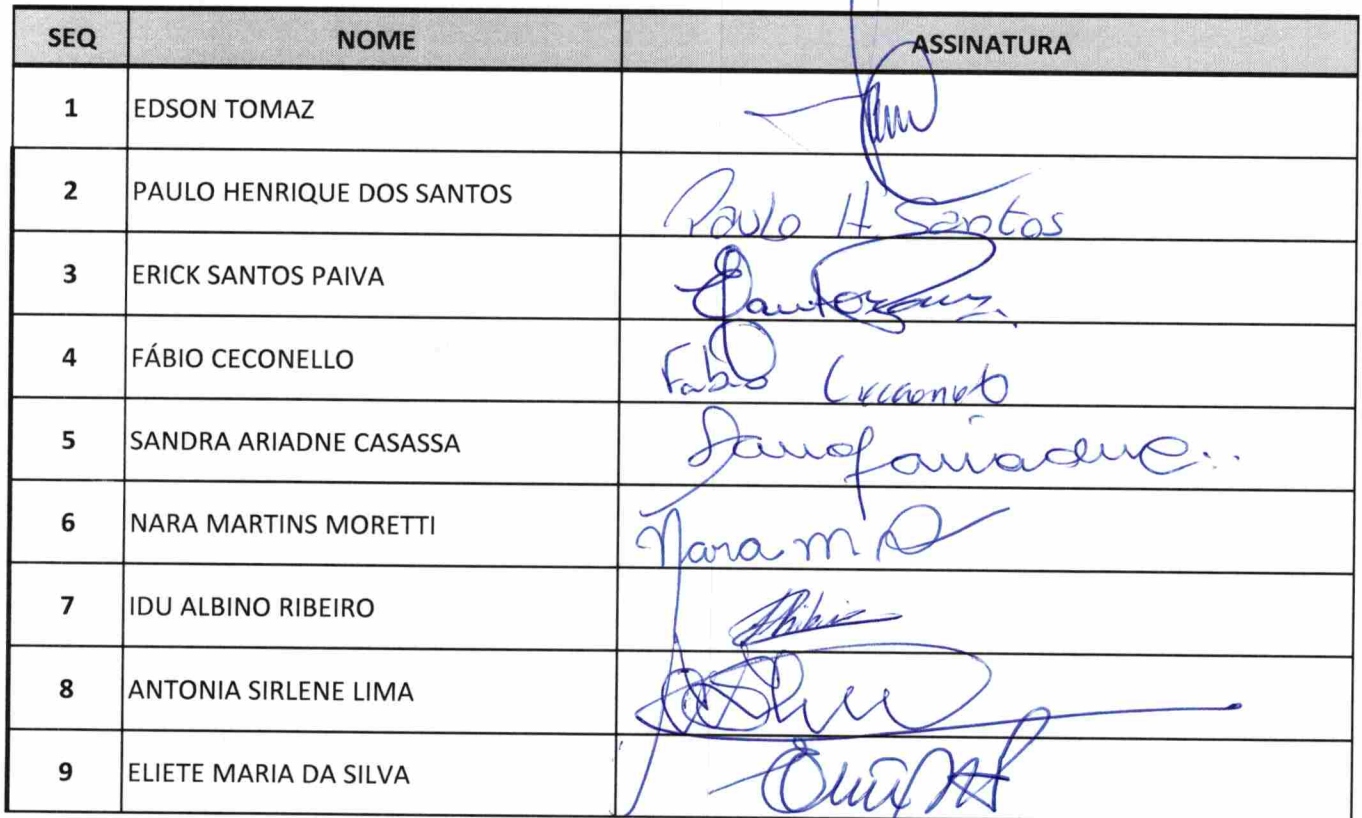 SEQ NOME ASSINATURA
1 EDSON TOMAZ
2 PAULO HENRIQUE DOS SANTOS Paulo H Santos
3 ERICK SANTOS PAIVA
4 FÁBIO CECONELLO Fabio
5 SANDRA ARIADNE CASASSA
6 NARA MARTINS MORETTI Nara M
7 IDU ALBINO RIBEIRO
8 ANTONIA SIRLENE LIMA
9 ELIETE MARIA DA SILVA